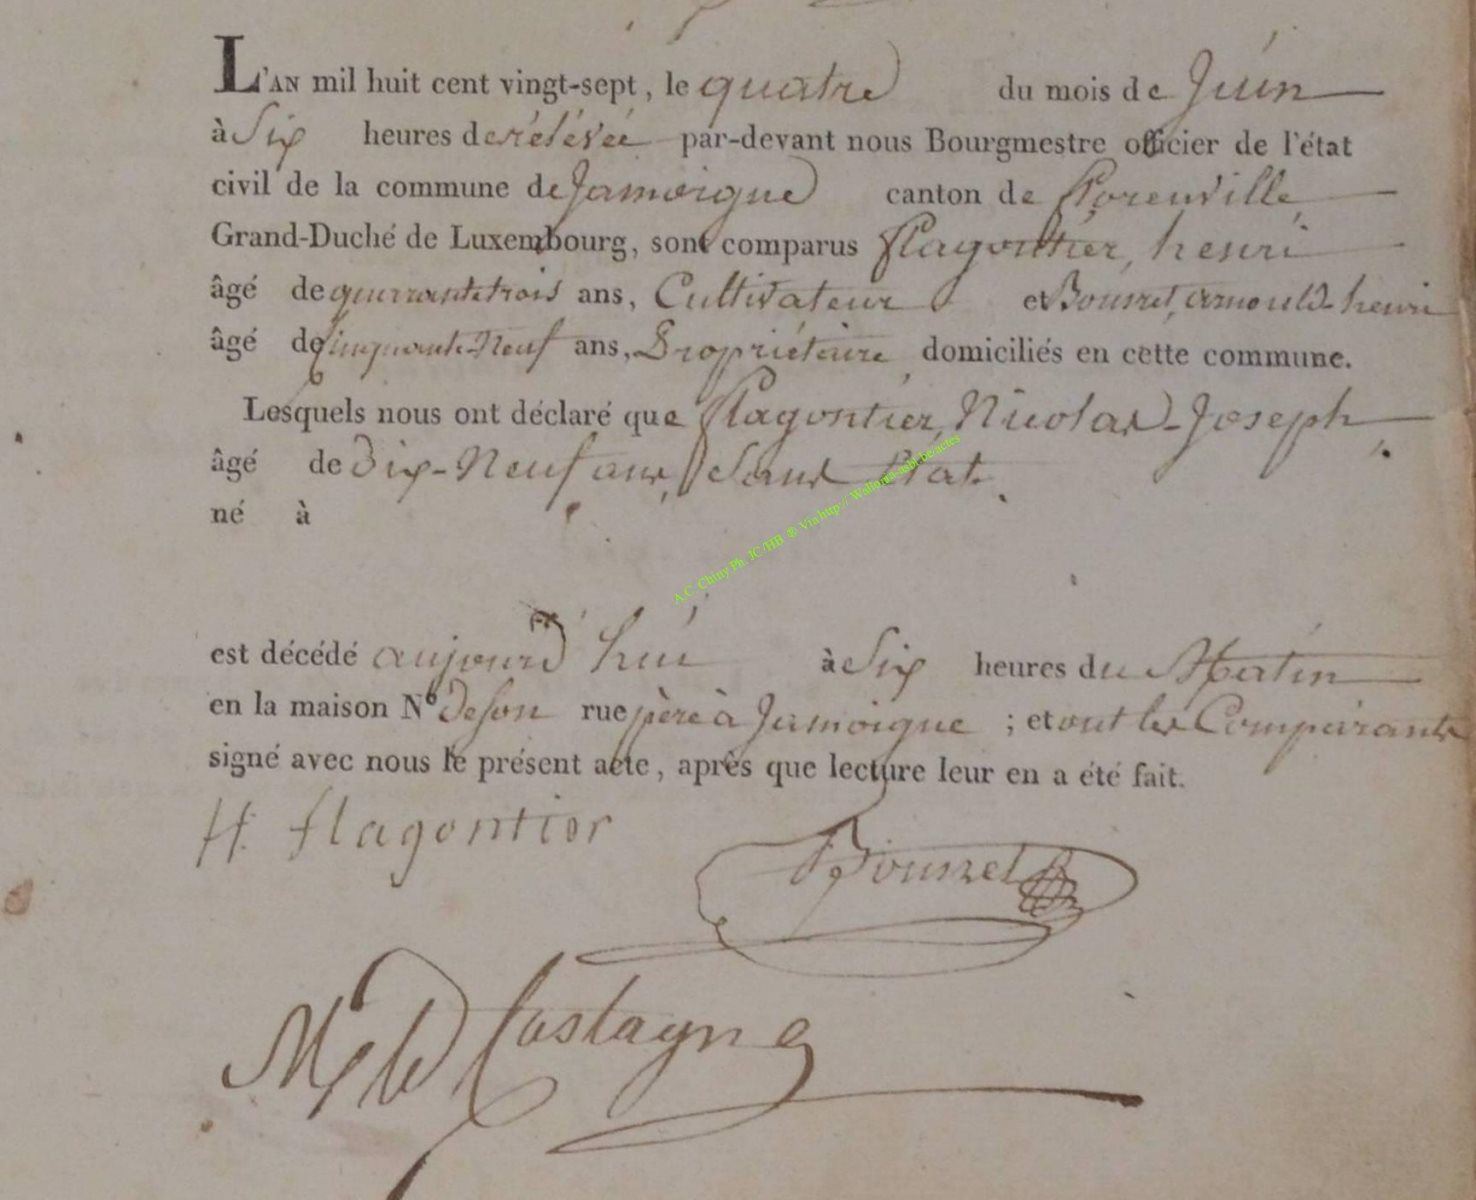 L'AN mil huit cent vingt-sept, le quatre du mois de Juin
à Six heures de rélévée par-devant nous Bourgmestre officier de l'état
civil de la commune de Jamoigne canton de Florenville
Grand-Duché de Luxembourg, sont comparus Flagontier, henri
âgé de quarrante trois ans, Cultivateur et Bourret, arnould-henri
âgé de Cinquante-Neuf ans, Propriétaire, domiciliés en cette commune.
Lesquels nous ont déclaré que Flagontier, Nicolas-Joseph
âgé de Dix-Neuf ans, Sans Etat.
né à
A.C. Chiny Ph. JC/HB ® Via http:// Wallonia-asbl.be/actes
est décédé aujourd'hui à Six heures du Matin
en la maison N° De son rue père à Jamoigne ; et ont les Comparants
signé avec nous le présent acte, après que lecture leur en a été fait.
H. flagontier
Castagne